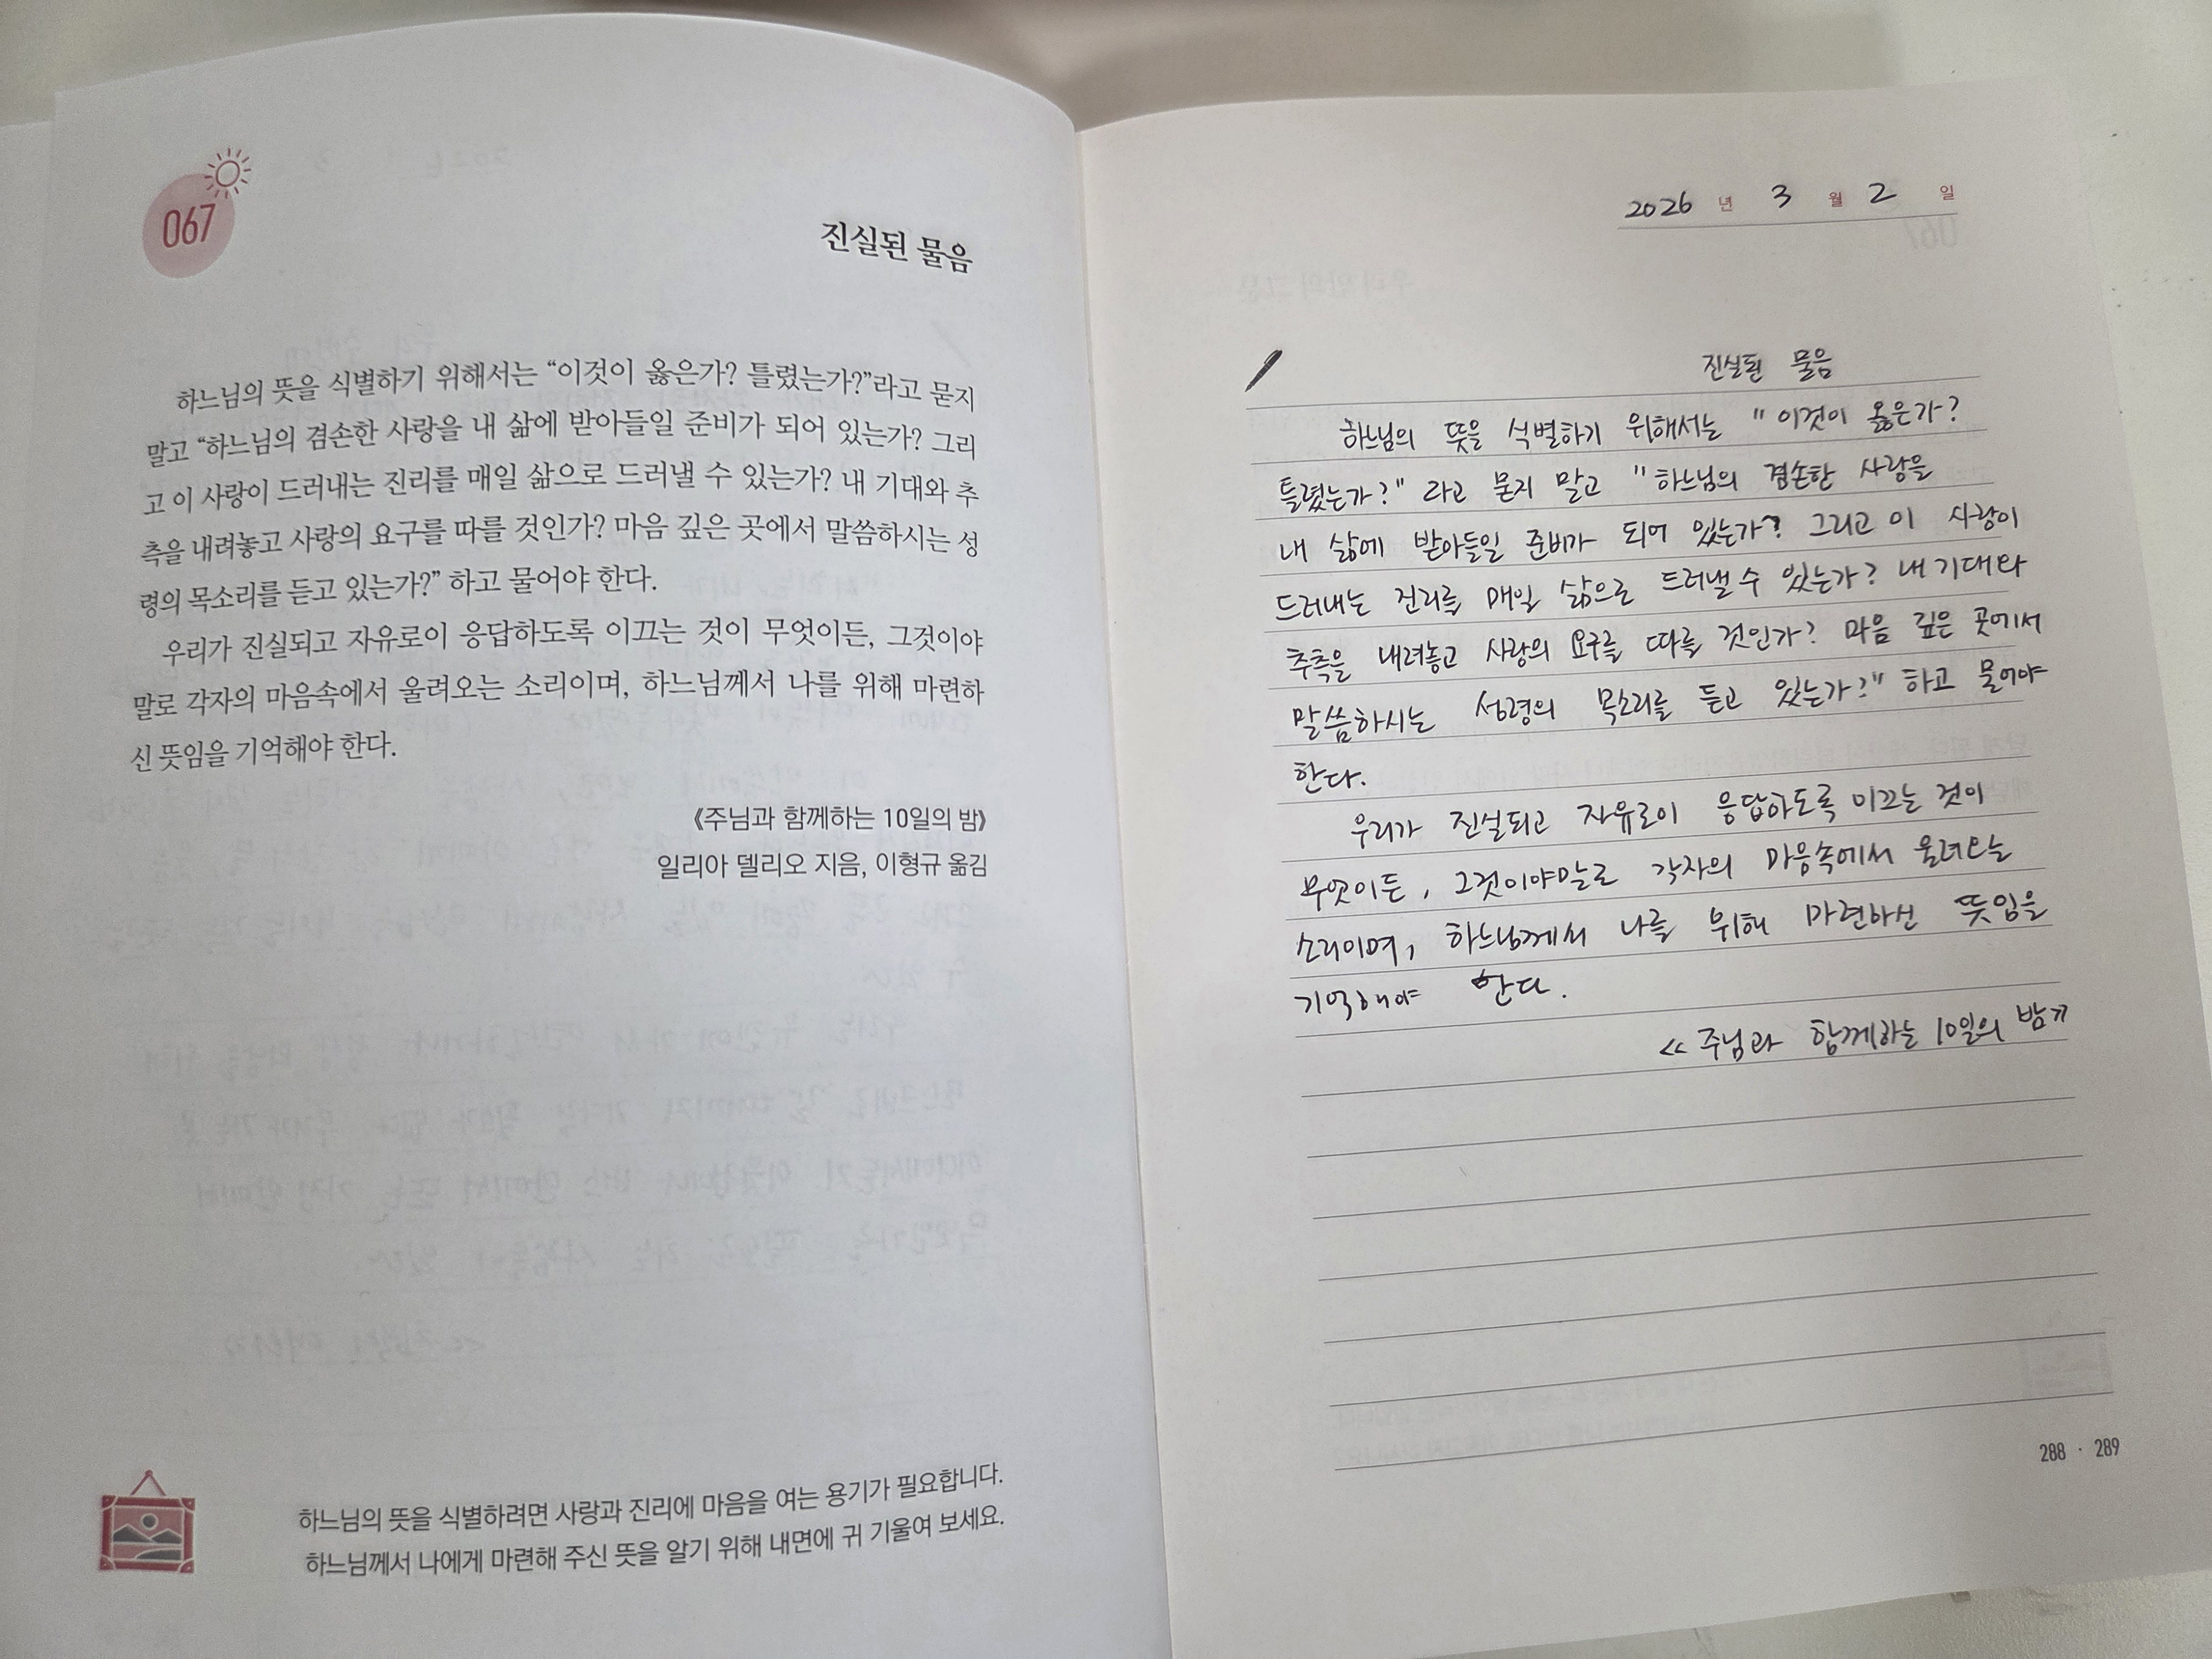 067
진실된 물음
하느님의 뜻을 식별하기 위해서는 “이것이 옳은가? 틀렸는가?”라고 묻지
말고 “하느님의 겸손한 사랑을 내 삶에 받아들일 준비가 되어 있는가? 그리
고 이 사랑이 드러내는 진리를 매일 삶으로 드러낼 수 있는가? 내 기대와 추
측을 내려놓고 사랑의 요구를 따를 것인가? 마음 깊은 곳에서 말씀하시는 성
령의 목소리를 듣고 있는가?” 하고 물어야 한다.
우리가 진실되고 자유로이 응답하도록 이끄는 것이 무엇이든, 그것이야
말로 각자의 마음속에서 울려오는 소리이며, 하느님께서 나를 위해 마련하
신 뜻임을 기억해야 한다.
《주님과 함께하는 10일의 밤》
일리아 델리오 지음, 이형규 옮김
하느님의 뜻을 식별하려면 사랑과 진리에 마음을 여는 용기가 필요합니다.
하느님께서 나에게 마련해 주신 뜻을 알기 위해 내면에 귀 기울여 보세요.
2026 년 3 월 2 일
진실된 물음
하느님의 뜻을 식별하기 위해서는 "이것이 옳은가?
틀렸는가?" 라고 묻지 말고 "하느님의 겸손한 사랑을
내 삶에 받아들일 준비가 되어 있는가? 그리고 이 사랑이
드러내는 진리를 매일 삶으로 드러낼 수 있는가? 내 기대와
추측을 내려놓고 사랑의 요구를 따를 것인가? 마음 깊은 곳에서
말씀하시는 성령의 목소리를 듣고 있는가?" 하고 물어야
한다.
우리가 진실되고 자유로이 응답하도록 이끄는 것이
무엇이든, 그것이야말로 각자의 마음속에서 울려오는
소리이며, 하느님께서 나를 위해 마련하신 뜻임을
기억해야 한다.
《주님과 함께하는 10일의 밤》
288 · 289